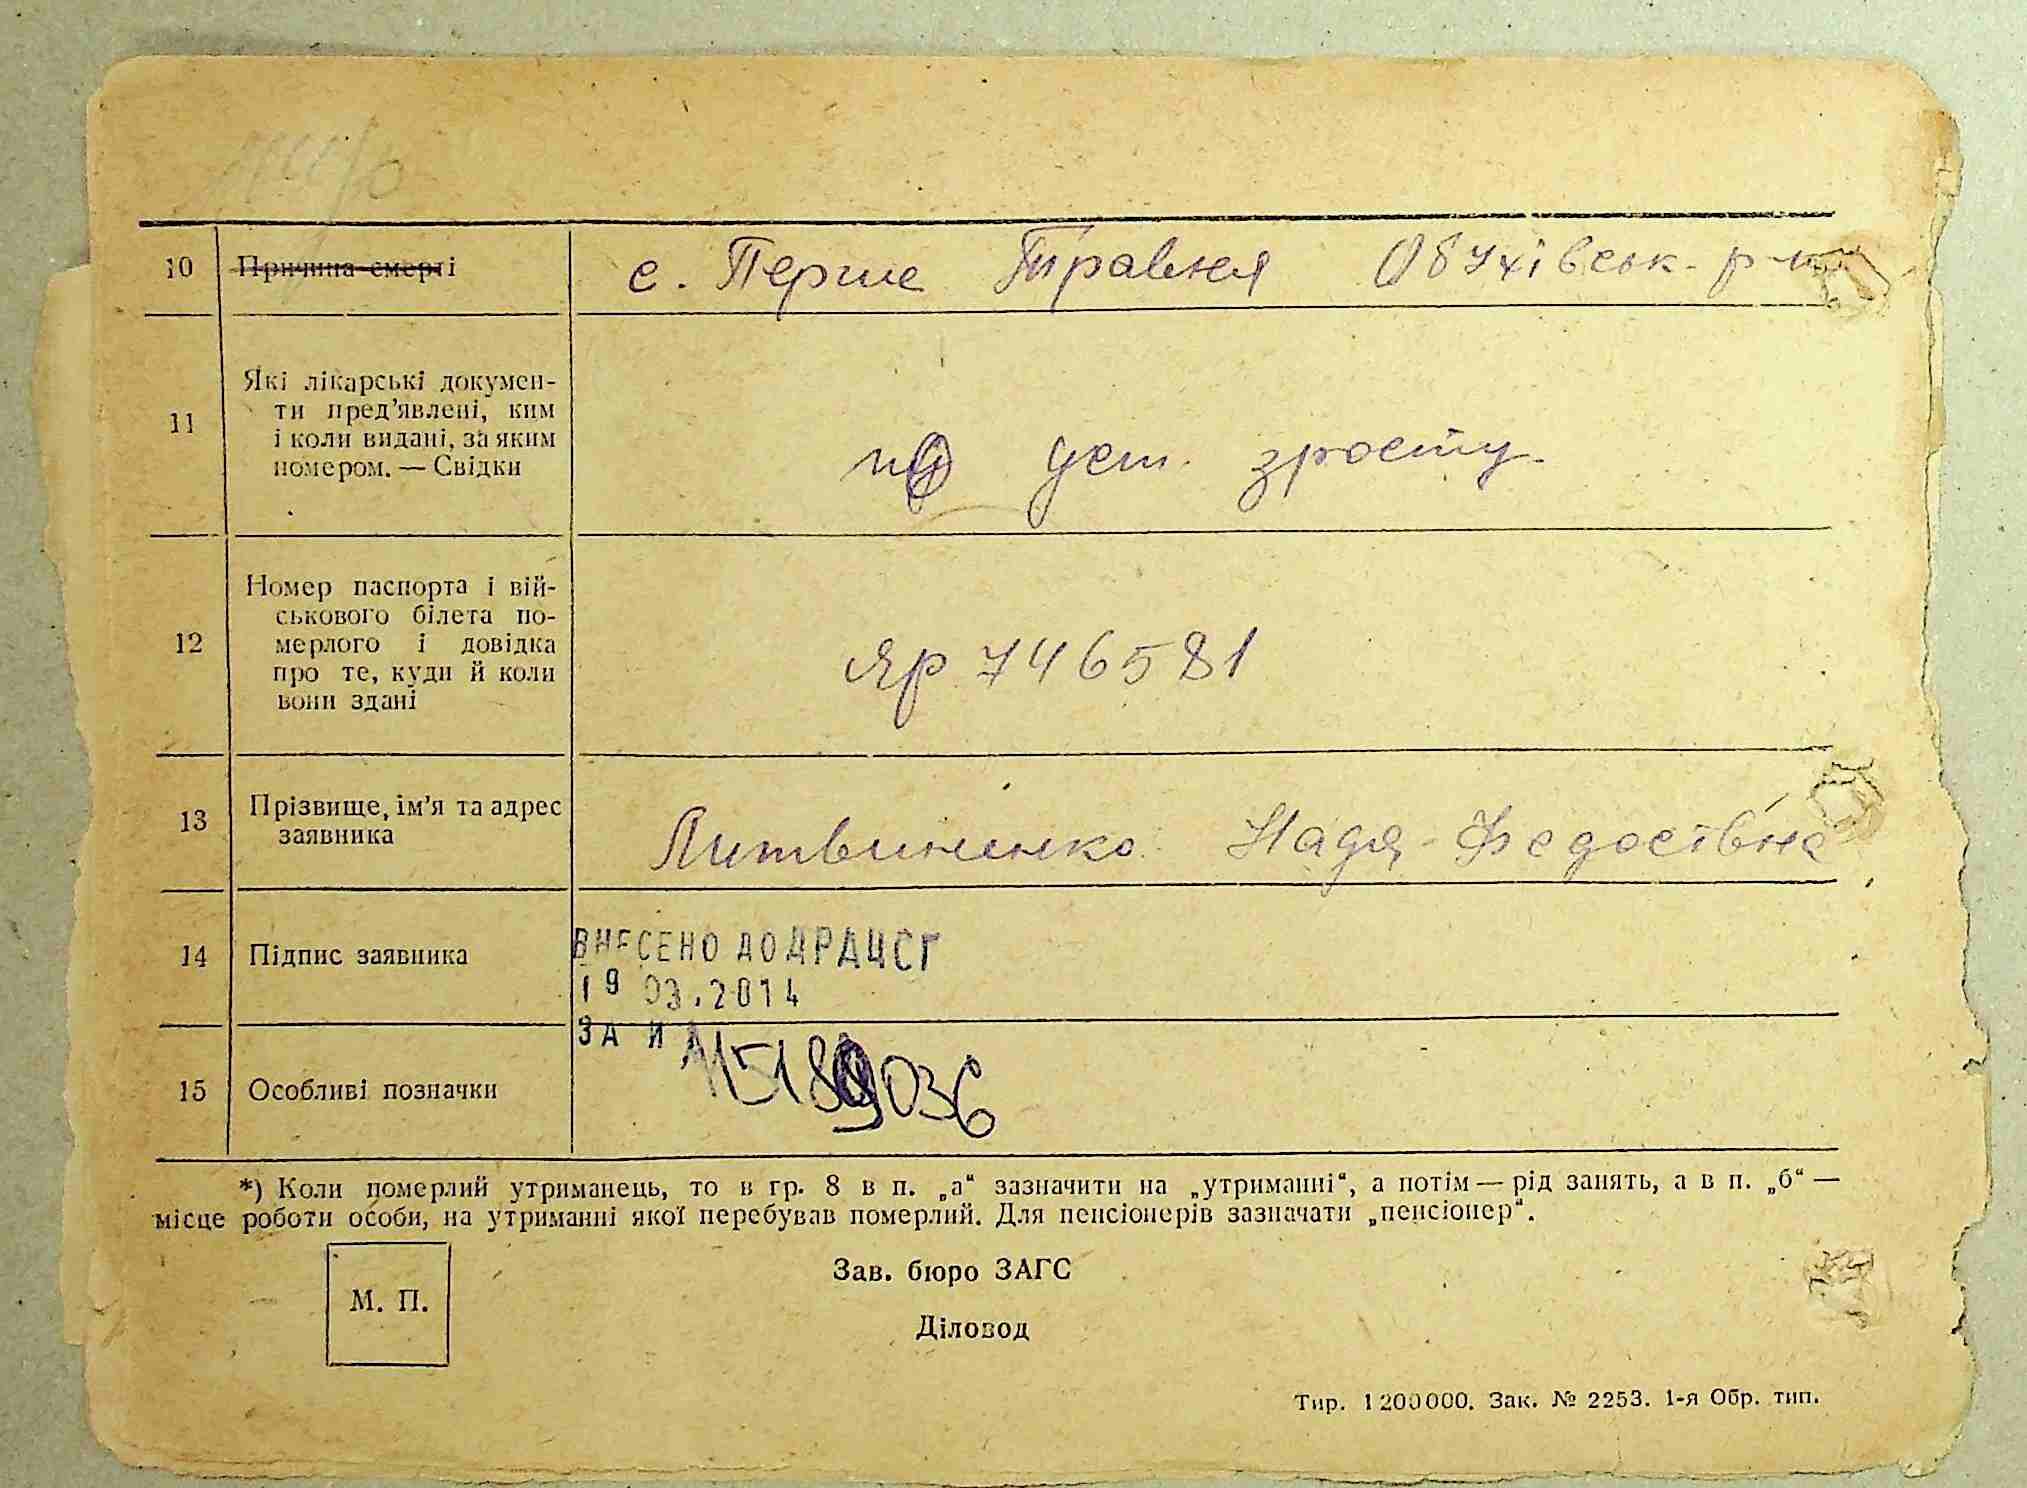 10 Причина смерті с. Перше Травня Обухівськ. р-н
11 Які лікарські докумен-
ти пред'явлені, ким
і коли видані, за яким
номером. — Свідки
по уст. зросту.
12 Номер паспорта і вій-
ськового білета по-
мерлого і довідка
про те, куди й коли
вони здані
ЯР 746581
13 Прізвище, ім'я та адрес
заявника
Литвиненко Надя Федосіївна
14 Підпис заявника
ВНЕСЕНО ДО ДРАЦСГ
19 03.2014
ЗА
15 Особливі позначки
*) Коли померлий утриманець, то в гр. 8 в п. „а“ зазначити на „утриманні“, а потім — рід занять, а в п. „б“ —
місце роботи особи, на утриманні якої перебував померлий. Для пенсіонерів зазначати „пенсіонер“.
М. П.
Зав. бюро ЗАГС
Діловод
Тир. 1200000. Зак. № 2253. 1-я Обр. тип.